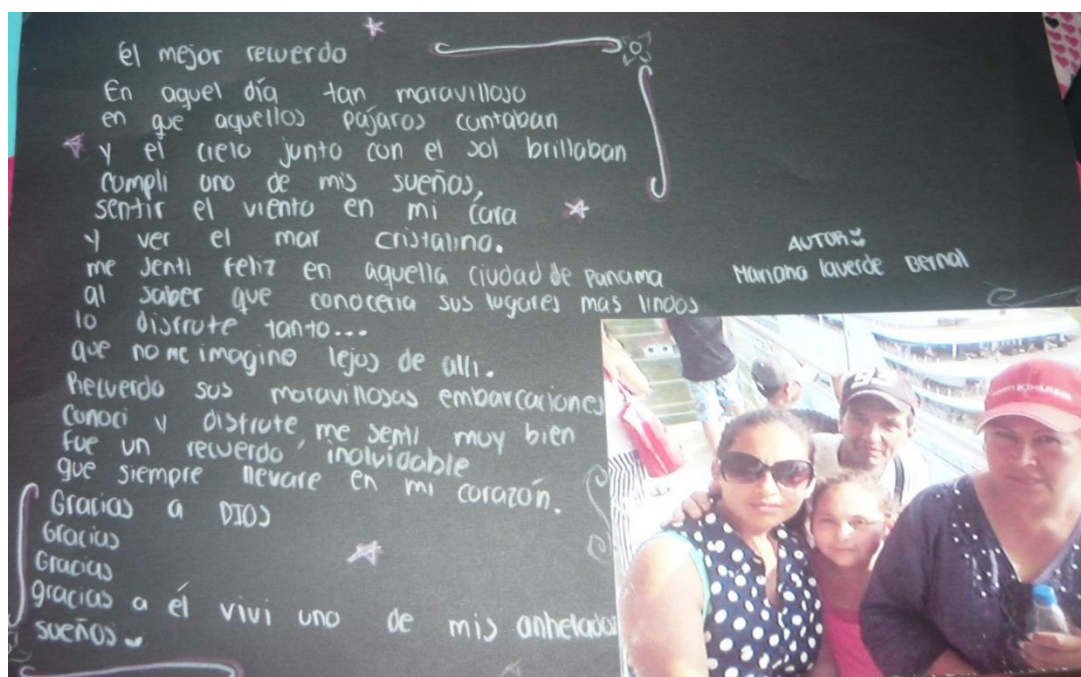 él mejor recuerdo
En aquel día tan maravilloso
en que aquellos pájaros cantaban
y el cielo junto con el sol brillaban
cumpli uno de mis sueños,
sentir el viento en mi cara
y ver el mar cristalino.
me senti feliz en aquella ciudad de Panama
al saber que conoceria sus lugares mas lindos
lo disfrute tanto...
que no me imagino lejos de alli.
Recuerdo sus maravillosas embarcaciones
conoci y disfrute, me senti muy bien
fue un recuerdo, inolvidable
que siempre llevare en mi corazón.
Gracias a DIOS
Gracias
Gracias
gracias a él vivi uno de mis anhelados
sueños
AUTOR
Mariana laverde Bernal